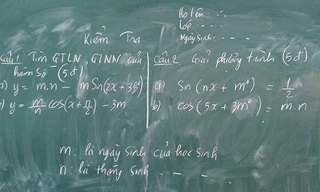 Họ tên: ...
Lớp ...
Ngày sinh ...
Kiểm Tra
Câu 1 Tìm GTLN, GTNN của
hàm số (5đ)
a) y = m.n - m Sin(2x + 35°)
b) y = m/n cos(x + π/2) - 3m
Câu 2 Giải phương trình (5đ)
a) Sin (nx + m°) = 1/2
b) cos (5x + 3m°) = m.n
m. là ngày sinh của học sinh
n. là tháng sinh - - - -